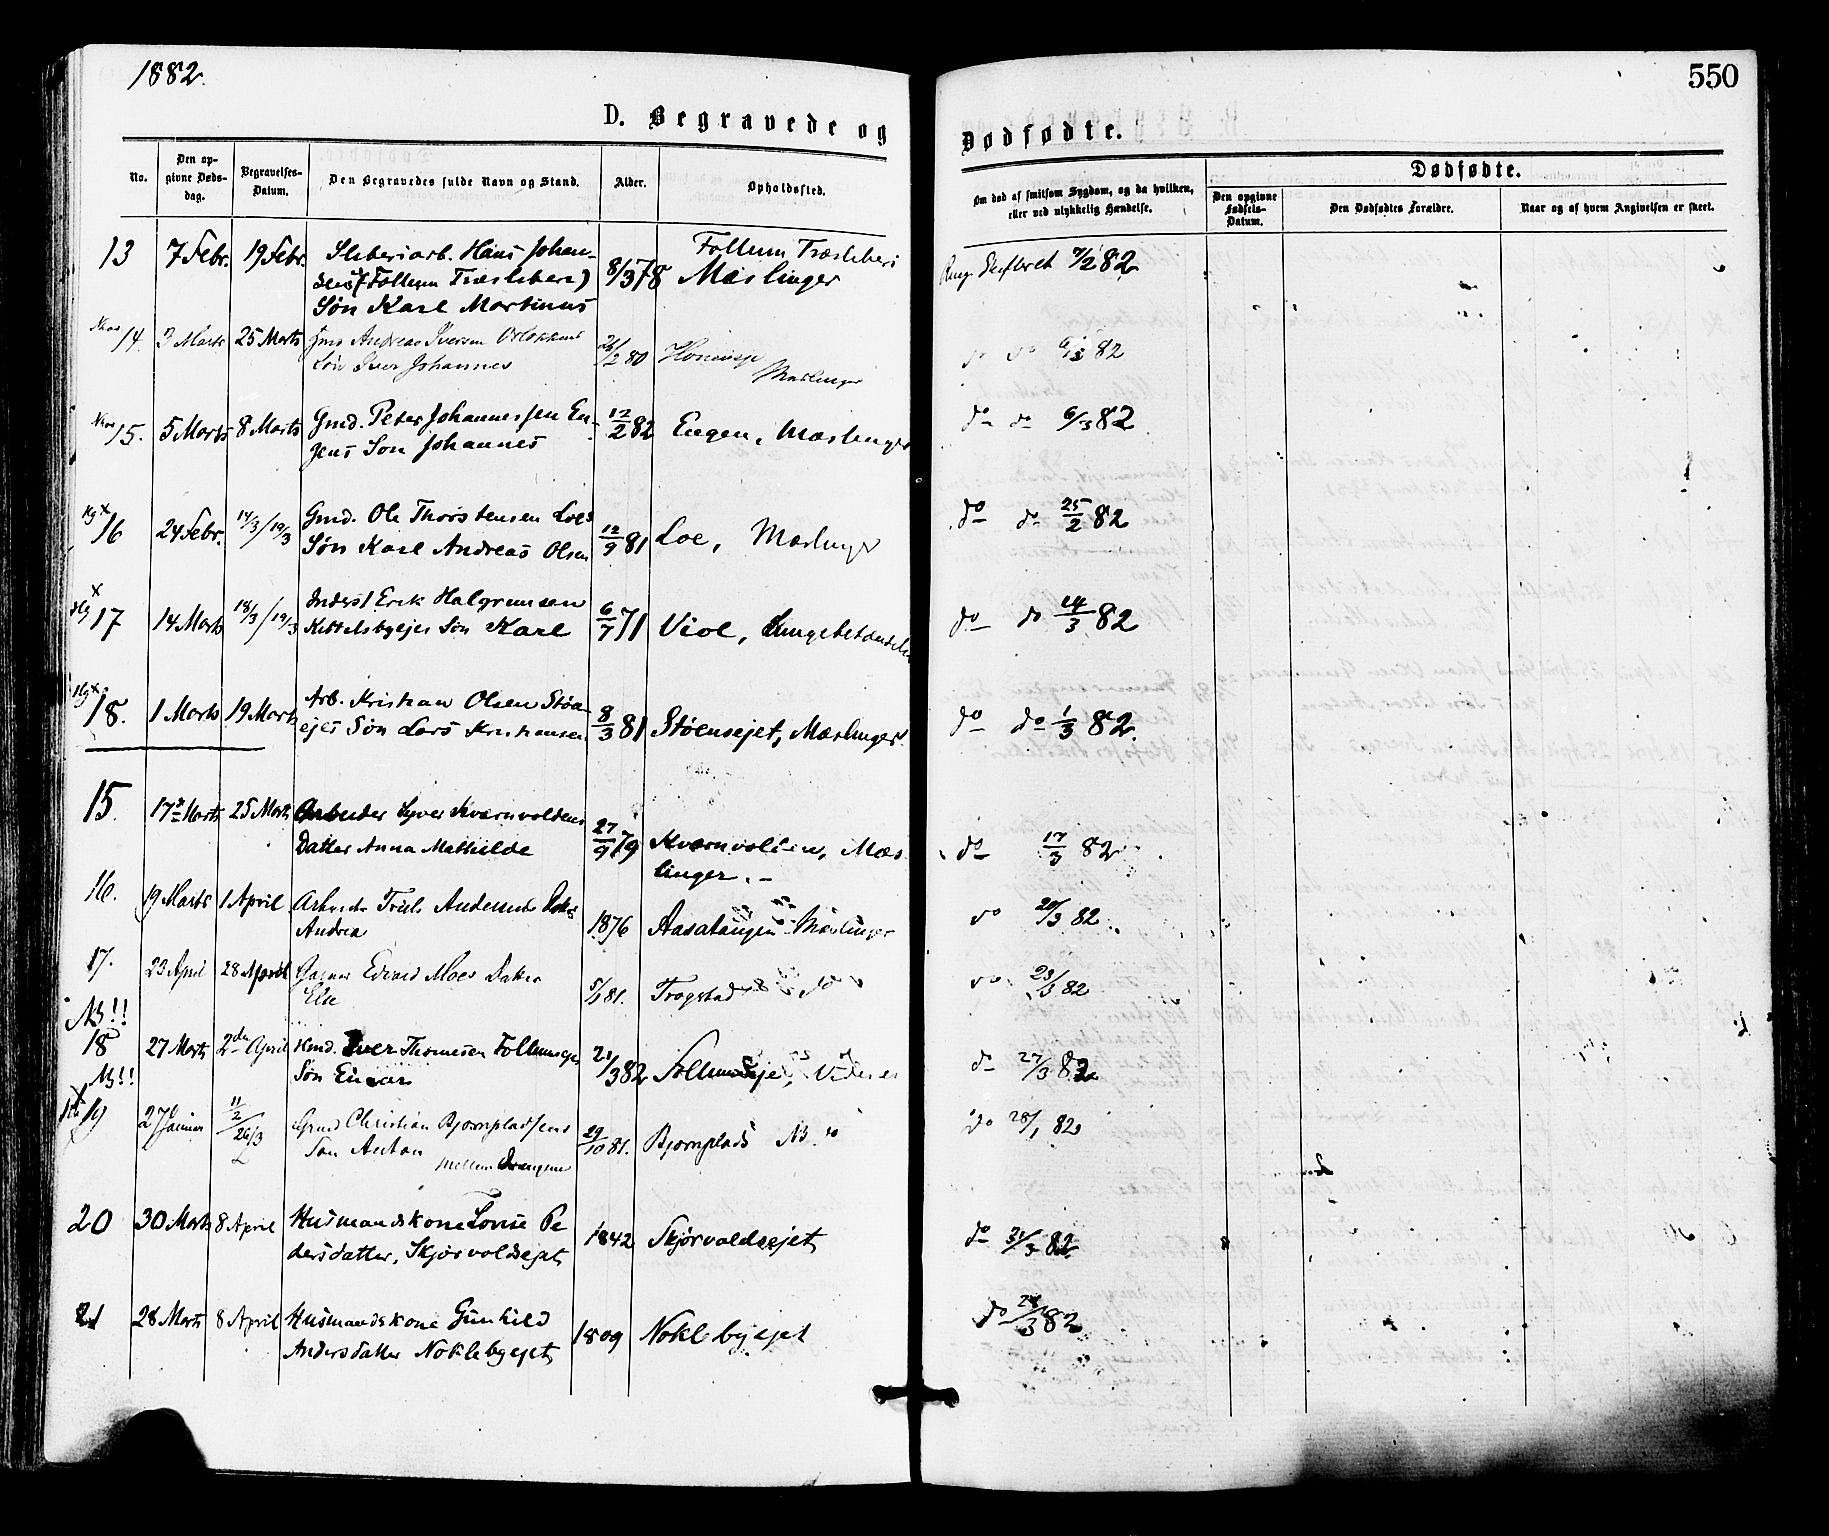 1882.
550
D. Begravede og Dødfødte.
No.
Den opgivne Dødsdag.
Begravelses-Datum.
Den Begravedes fulde Navn og Stand.
Alder.
Opholdssted.
Om død af smitsom Sygdom, og da hvilken, eller ved ulykkelig Hændelse.
Dødfødte.
Den opgivne Fødsels-Datum.
Den Dødfødtes Forældre.
Naar og af hvem Angivelsen er skeet.
13 7 Febr. 19 Febr. Sliberiarb. Hans Johan- 8/3 78 Follum Træsliberi
sens (Follum Træsliberi) Mæslinger
Søn Karl Martinus
Skifteret 7/2 82
14. 3 Marts 25 Marts Gmd Andreas Iversen 26/2 80
Søn Iver Johannes Mæslinger
do do 6/3 82
15. 5 Marts 8 Marts Gmd. Peter Johannessen En- 12/2 82 Engen, Mæslinger
gens Søn Johannes
do do 6/3 82
16 24 Febr. 14/3 / 19/3 Gmd. Ole Thorstensen Loes 12/9 81 Loe, Mæslinger
Søn Karl Andreas Olsen
do do 25/2 82
17 14 Marts 18/3 / 19/3 Inderst Erik Halgrimsen 6/7 71 Viol, Lungebetændelse
Kittelsbyejes Søn Karl
do do 14/3 82
18. 1 Marts 19 Marts Arb. Kristian Olsen Støa- 8/3 81 Støensejet, Mæslinger
ejes Søn Lars Kristiansen
do do 1/3 82.
15. 17de Marts 25 Marts Arbeider Syver Kværnvoldens 27/9 79 Kværnvolden, Mæs-
Datter Anna Mathilde linger. -
do 17/3 82
16. 19 Marts 1 April Truls Andersens 1876 Aasatangen Mæslinger
Andrea
do 20/3 82
17. 23 April 28 April Edvard Moes Datter 5/1 81. Trogstad do
Else
do 23/3 82
NB!!
18 27 Marts 2den April Hmd. Iver Thomesen Follumsejes 21/3 82 Follumsejet,
Søn Einar
do 27/3 82
NB!!
19 27 Januar 11/2 26/3 Gmd Christian Bjørnpladsens 29/10 81. Bjørnplads NB.
Søn Anton
do 28/1 82
20 30 Marts 8 April Husmandskone Lovise Pe- 1842 Skjørvoldsejet
dersdatter, Skjørvoldsejet
do 31/3 82
21 28 Marts 8 April Husmandskone Gunhild 1809 Noklebyejet
Andersdatter Noklebyejet
do 28/3 82